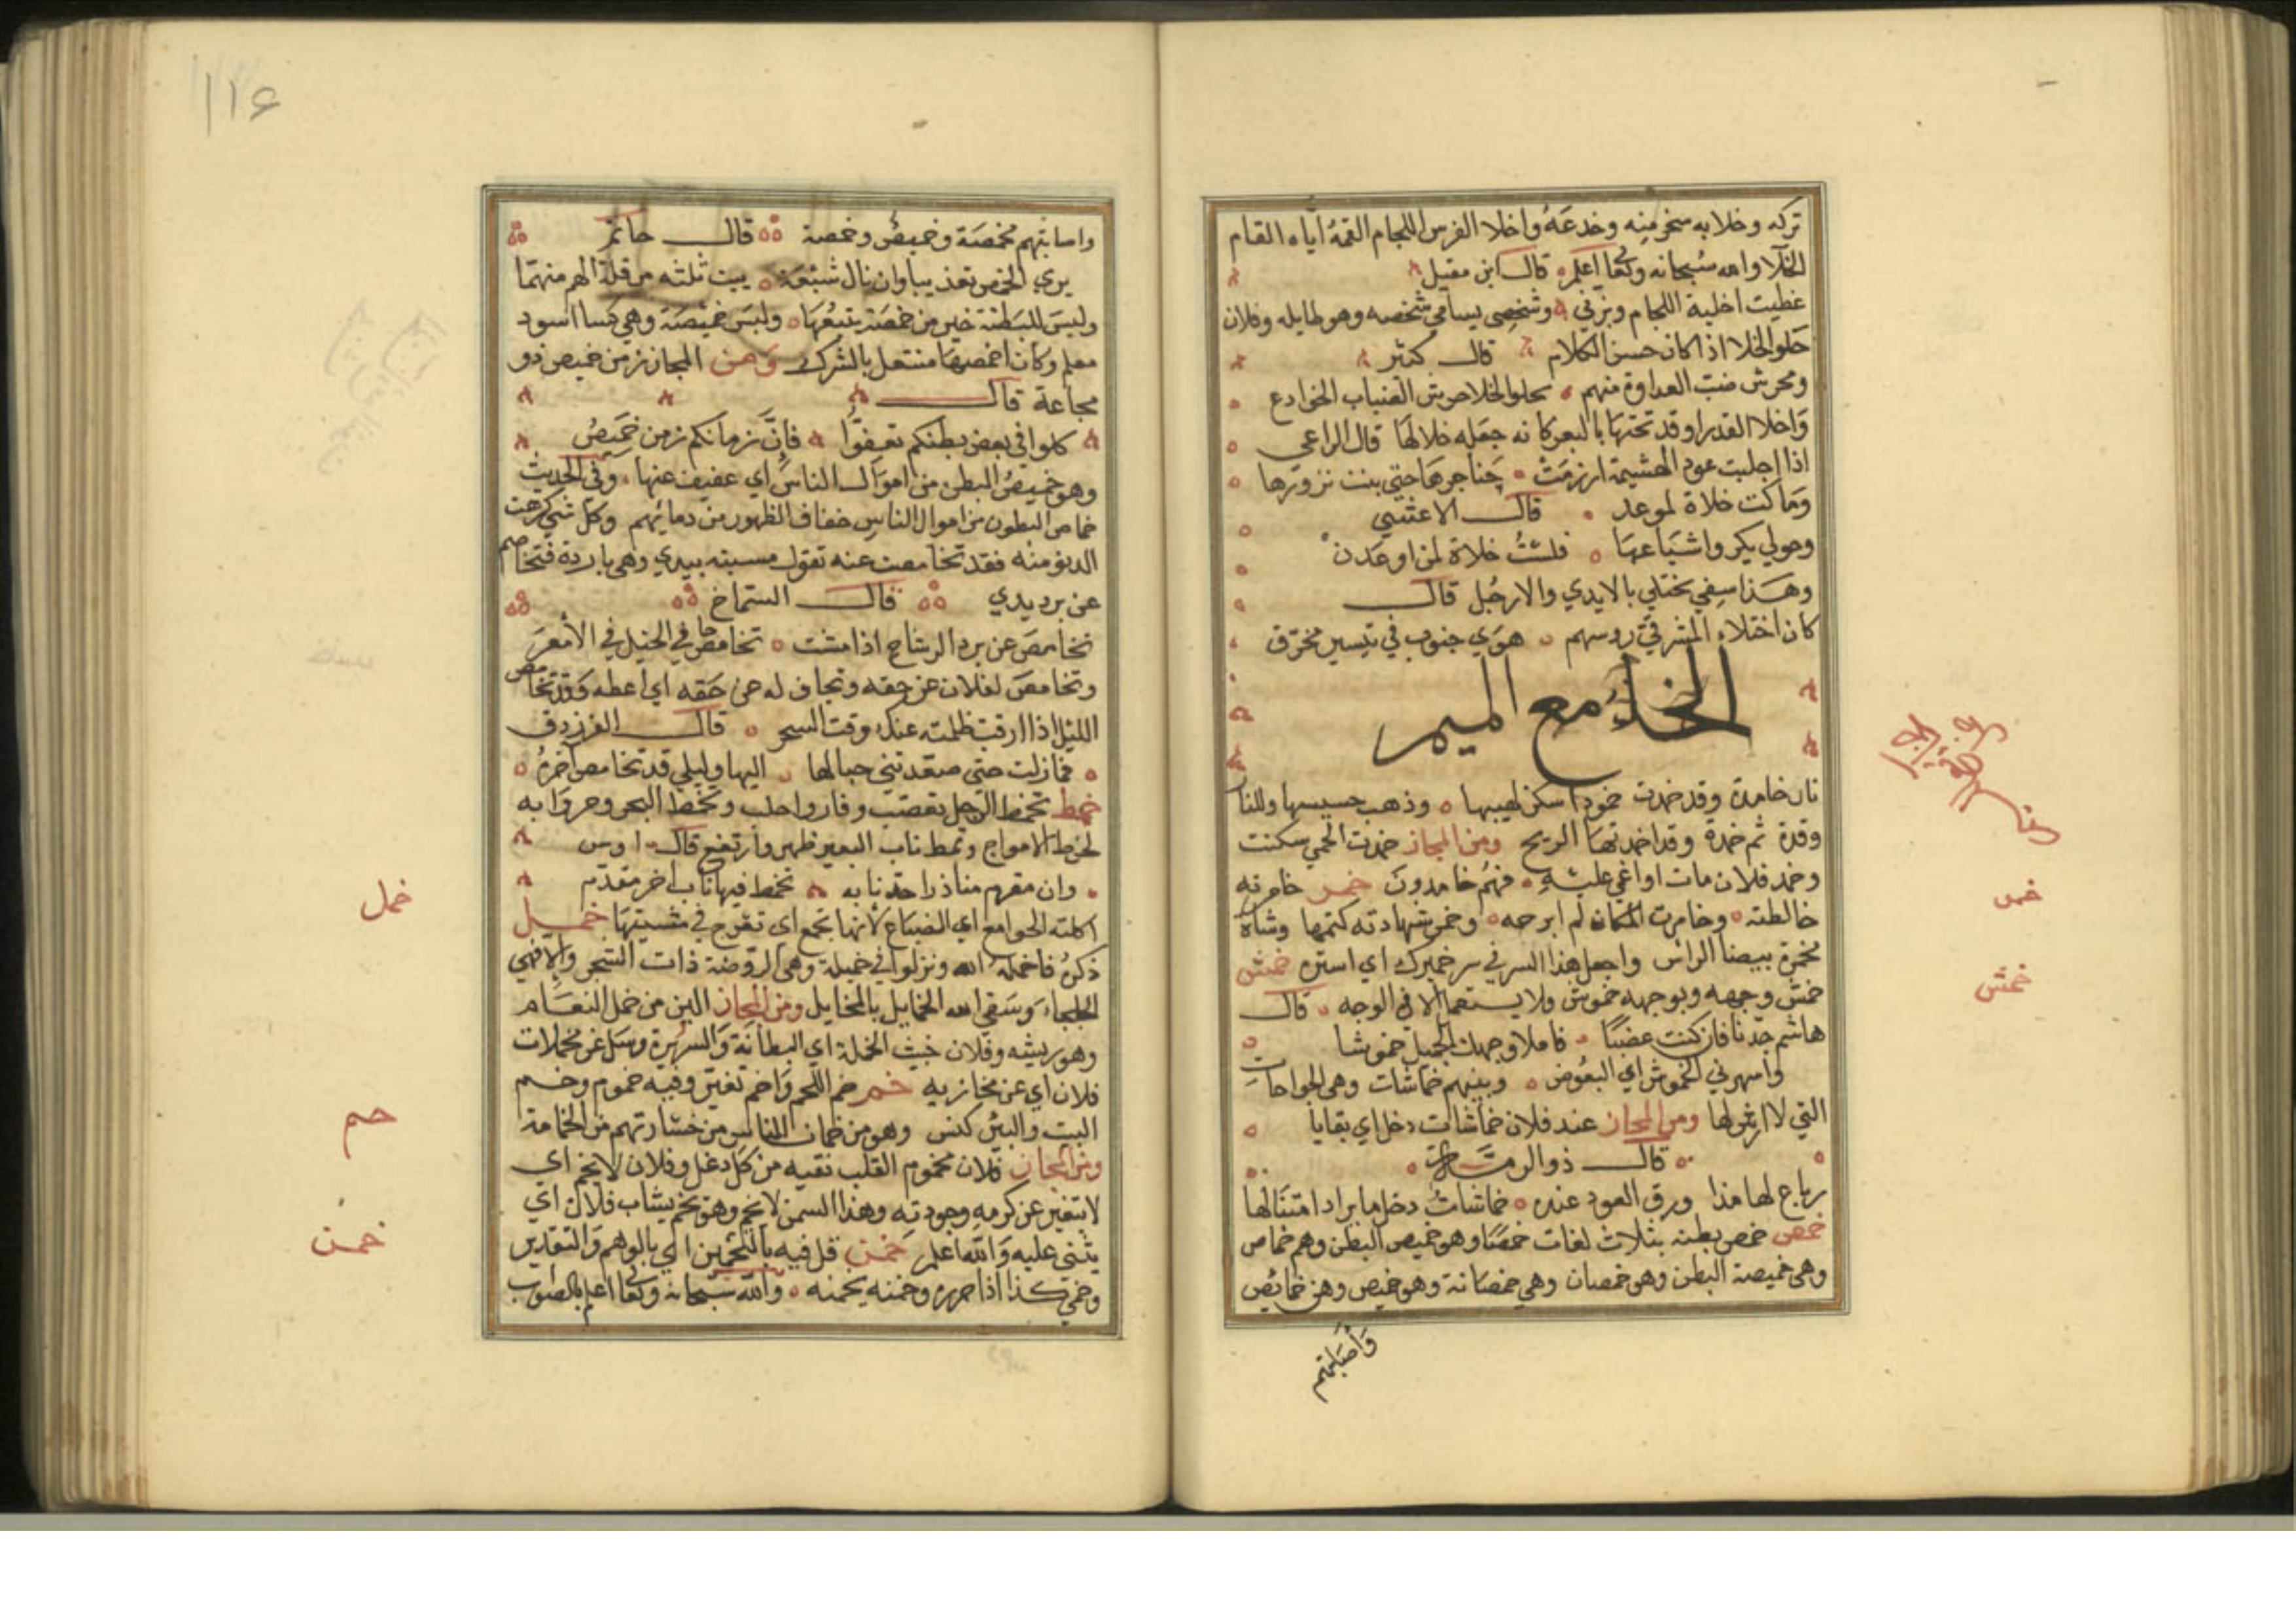 تركه وخلا به سخر منه وخدعه واخلا الفرس اللجام القمه اياه القام
الخلا والله سبحانه وتعالى اعلم قال ابن مقبل
غطيت اخلية اللجام وبزني وشخصي يسامي شخصه وهو طايله وفلان
حلو الخلا اذا كان حسن الكلام قال كثير
ومحرش ضب العداوة منهم بحلو الخلا حرش الضباب الخوادع
واخلا القدر اوقد تحتها بالبعر كانه جعله خلا لها قال الراعي
اذا اجلبت عود الهشيمة ارزمت حناجرها حتى بنت نزورها
وما كنت خلاة لموعد قال الاعشي
وحولي بكر واشياعها فلست خلاة لمن اوعدن
وهذا سيفي يختلي بالايدي والارجل قال
كان اختلاء المشرفي روسهم هوي جنوب في يبيس مخرق
الخاء مع الميم
نار خامدة وقد خمدت خمودا سكن لهيبها وذهب حسيسها وللنار
وقدة ثم خمدة وقد اخمدتها الريح ومن المجاز خمدت الحمي سكنت
وخمد فلان مات او اغمي عليه فهم خامدون خمر خامرته
خالطته وخامرت المكان لم ابرحه وخمر شهادته كتمها وشاة
مخمرة بيضا الراس واجعل هذا السر في سر خميرك اي استره خمش
خمش وجهه وبوجهه خموش ولا يستعمل الا في الوجه قال
هاشم جدنا فان كنت غضبا فاملاي وجهك الجميل خموشا
واسهرني الخموش اي البعوض وبينهم خماشات وهي الجراحات
التي لا ارش لها ومن المجاز عند فلان خماشات دخل اي بقايا
قال ذو الرمة
رباع لها مذا ورق العود عنده خماشات دخل ما يراد امتثالها
خمص خمص بطنه بثلاث لغات خمصا وهو خميص البطن وهم خماص
وهي خميصة البطن وهو خمصان وهي خمصانة وهو خميص وهن خمائص
واصابتهم
خمر
خمش
١١٤
واصابتهم مخمصة وخميص وخمصة قال حاتم
يري الخمص تعذيبا وان نال شبعة يبت ثلثه من قلة الهم منهما
وليس للبطنة خير من خمصة يتبعها ولبس خميصة وهي كسا اسود
معلم وكان اخمصها منتعل بالشرك ومن المجاز زمن خميص ذو
مجاعة قال
كلوا في بعض بطنكم تعفوا فان زمانكم زمن خميص
وهو خميص البطن من اموال الناس اي عفيف عنها وفي الحديث
خماص البطون من اموال الناس خفاف الظهور من دمائهم وكل شي كرهت
الدنو منه فقد تخامصت عنه تقول مسسته بيدي وهي باردة فتخامص
عن برد يدي قال الشماخ
تخامص عن برد الوشاح اذا مشت تخامص حافي الخيل في الامعز
وتخامص لفلان عن حقه وتجاف له عن حقه اي اعطه وقد تخامص
الليل اذا ارقت ظلمته عند وقت السحر قال الفرزدق
فما زلت حتى صعدتني حبالها اليها وليلي قد تخامص اخره
خمط تخمط الرجل تغضب وفار واجلب وتخمط البحر وحروا به
لخمط الامواج وتخمط ناب البعير ظهر وارتفع قال اوس
وان مقرم منا ذرا حد نابه تخمط فيها ناب اخر مقدم
اكلته الخوامع اي الضباع لانها تخمع اي تعرج في مشيتها خمل
ذكره فاخمله الله ونزلوا في خميلة وهي الروضة ذات الشجر والا فهي
الجلحاء وسقي الله الخمايل بالمخايل ومن المجاز الين من خمل النعام
وهو ريشه وفلان خبيث الخملة اي البطانة والسريرة وسل عن مخملات
فلان اي عن مخازيه خمم خم اللحم واخم تغير وفيه خموم وخم
البيت والبئر كنس وهو من خمان الناس من خشارتهم من الخمامة
ومن المجاز فلان مخموم القلب نقيه من كل دغل وفلان لا يخم اي
لا يتغير عن كرمه وجودته وهذا السمن لا يخم وهو يخم بثياب فلان اي
يثني عليه والله اعلم خمن قل فيه بالتخمين اي بالوهم والتقدير
وخمن كذا اذا حزره وخمنه يخمنه والله سبحانه وتعالى اعلم بالصواب
خمل
خم
خمن